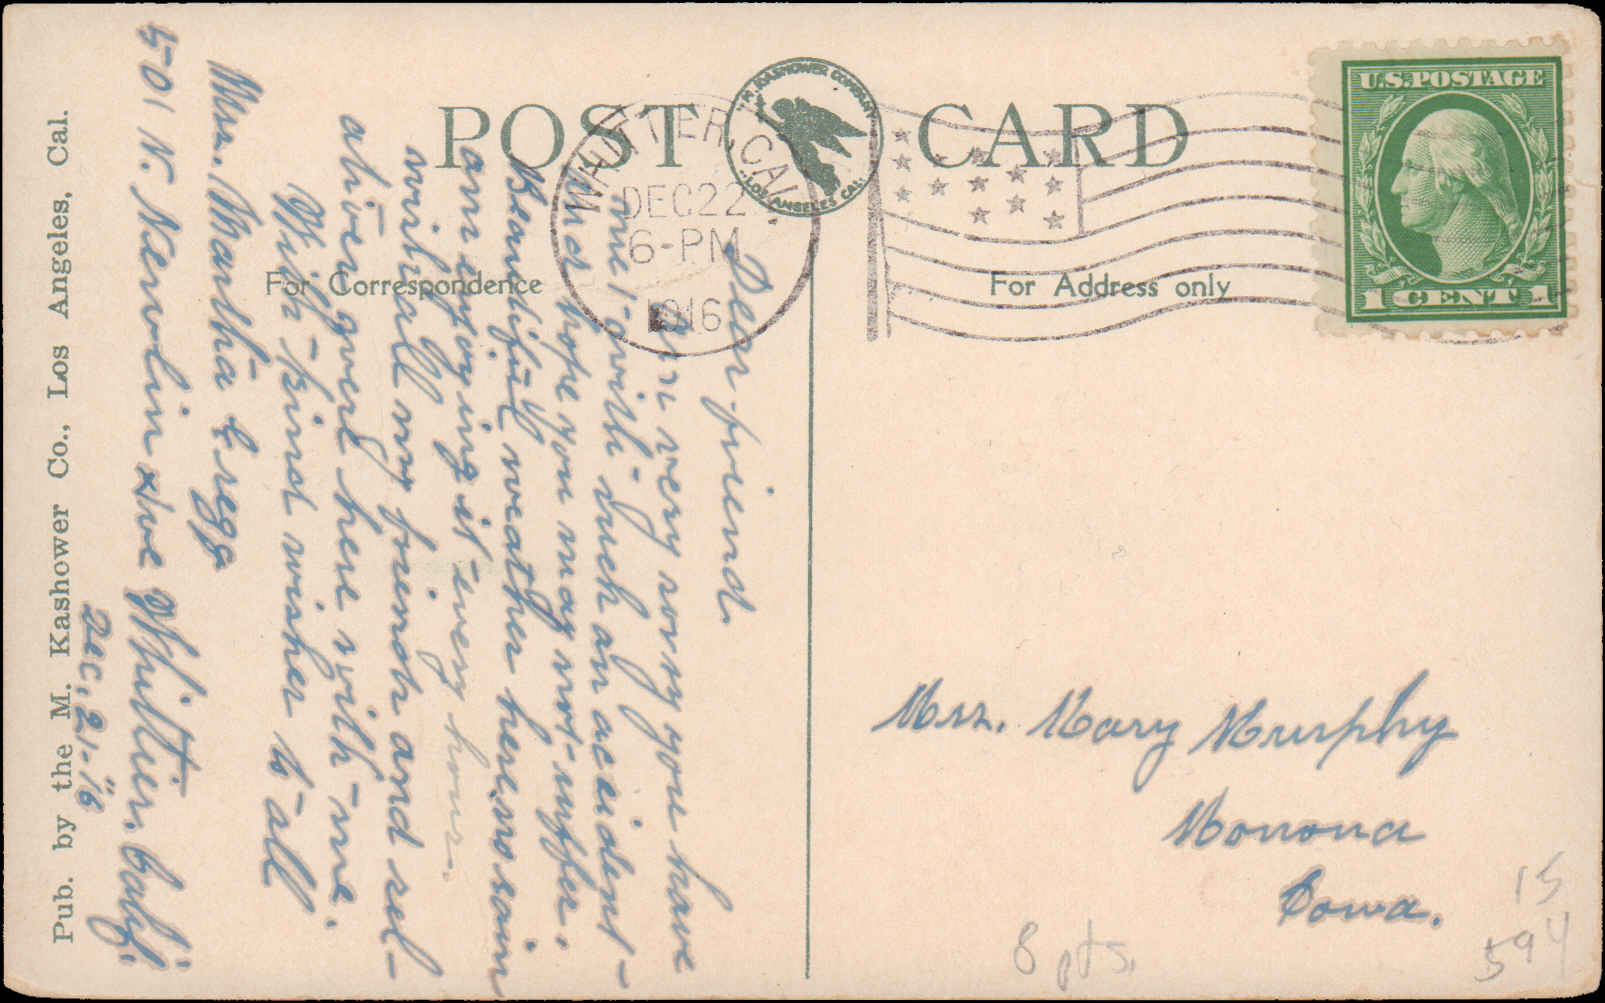 POST CARD
M. KASHOWER COMPANY
LOS ANGELES CAL.
WHITTIER, CAL.
DEC 22
6-PM
1916
U.S. POSTAGE
1 CENT 1
For Correspondence
For Address only
Pub. by the M. Kashower Co., Los Angeles, Cal.
Dear friend.
am very sorry you have
me with such an accident
and hope you may not suffer.
Beautiful weather here, no rain
am enjoying it every hour.
wish all my friends and rel-
atives were here with me.
With kind wishes to all
Mrs. Martha Gregg
501 N. Nervolin Ave Whittier. Calif.
Dec. 21. '16
Mrs. Mary Murphy
Monona
Iowa.
8 pts.
15
594